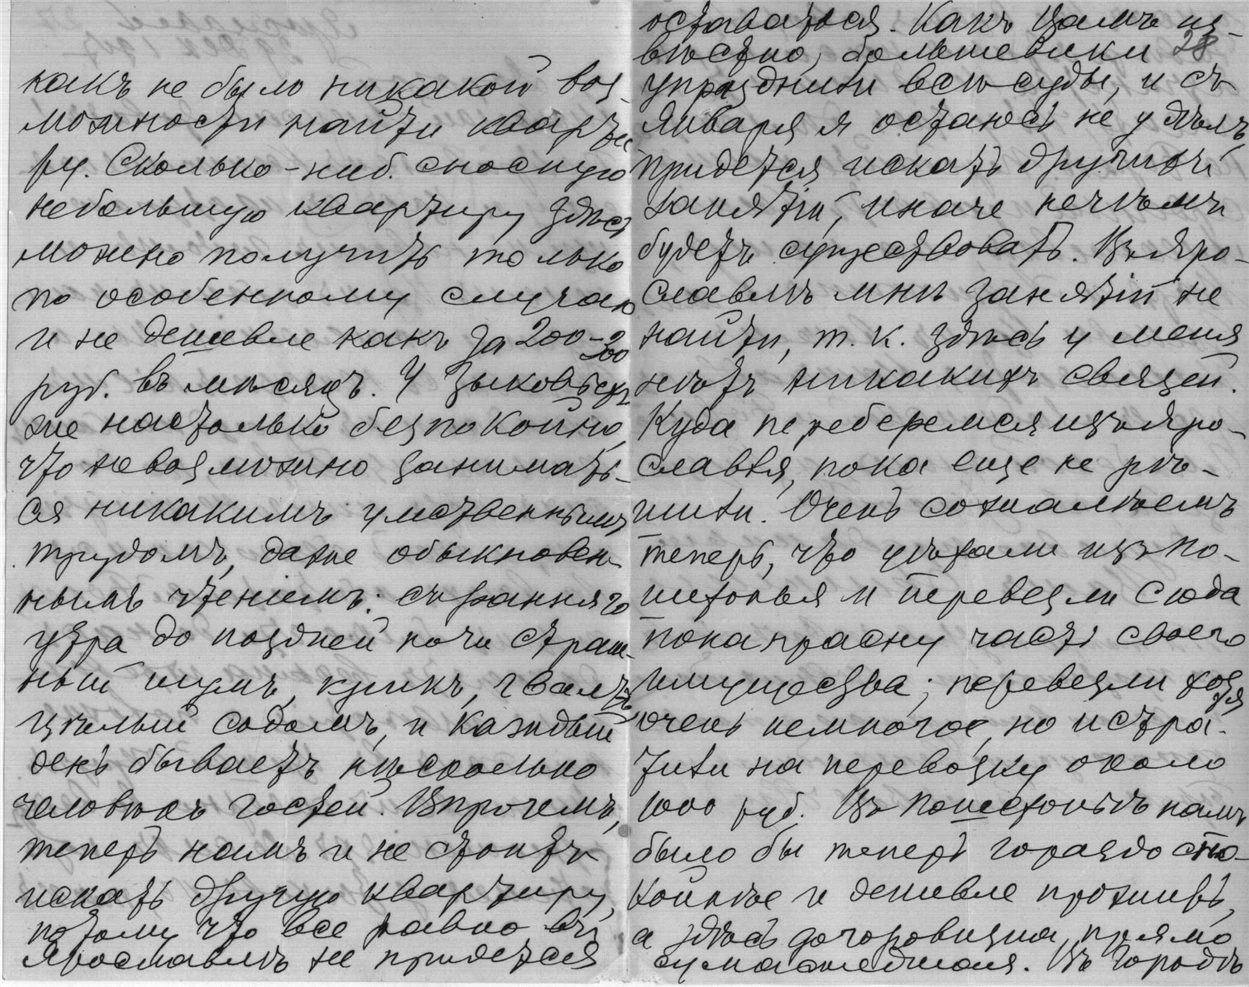 какъ не было никакой воз-
можности найти кварти-
ру. Сколько-ниб. сносную
небольшую квартиру здѣсь
можно получить только
по особенному случаю
и не дешевле какъ за 200-300
руб. въ мѣсяцъ. У Зыковыхъ
же настолько безпокойно,
что невозможно занимать-
ся никакимъ умственнымъ
трудомъ, даже обыкновен-
нымъ чтеніемъ: съ ранняго
утра до поздней ночи страш-
ный шумъ, крикъ, гвалтъ,
цѣлый содомъ, и каждый
день бываетъ нѣсколько
человѣкъ гостей. Впрочемъ,
теперь намъ и не стоитъ
искать другую квартиру,
потому что все равно въ
Ярославлѣ не придется
оставаться. Какъ Вамъ из-
вѣстно, большевики 28
упразднили всѣ суды, и съ
Января я остаюсь не у дѣлъ,
придется искать другихъ
занятій, иначе нечѣмъ
будетъ существовать. Въ Яро-
славлѣ мнѣ занятій не
найти, т. к. здѣсь у меня
нѣтъ никакихъ связей.
Куда переберемся изъ Яро-
славля, пока еще не рѣ-
шили. Очень сожалѣемъ
теперь, что уѣхали изъ По-
шехонья и перевезли сюда
понапрасну часть своего
имущества; перевезли хотя
очень немногое, но истра-
тили на перевозку около
1000 руб. Въ Пошехоньѣ намъ
было бы теперь гораздо спо-
койнѣе и дешевле прожить,
а здѣсь дороговизна прямо
сумасшедшая. Въ городѣ